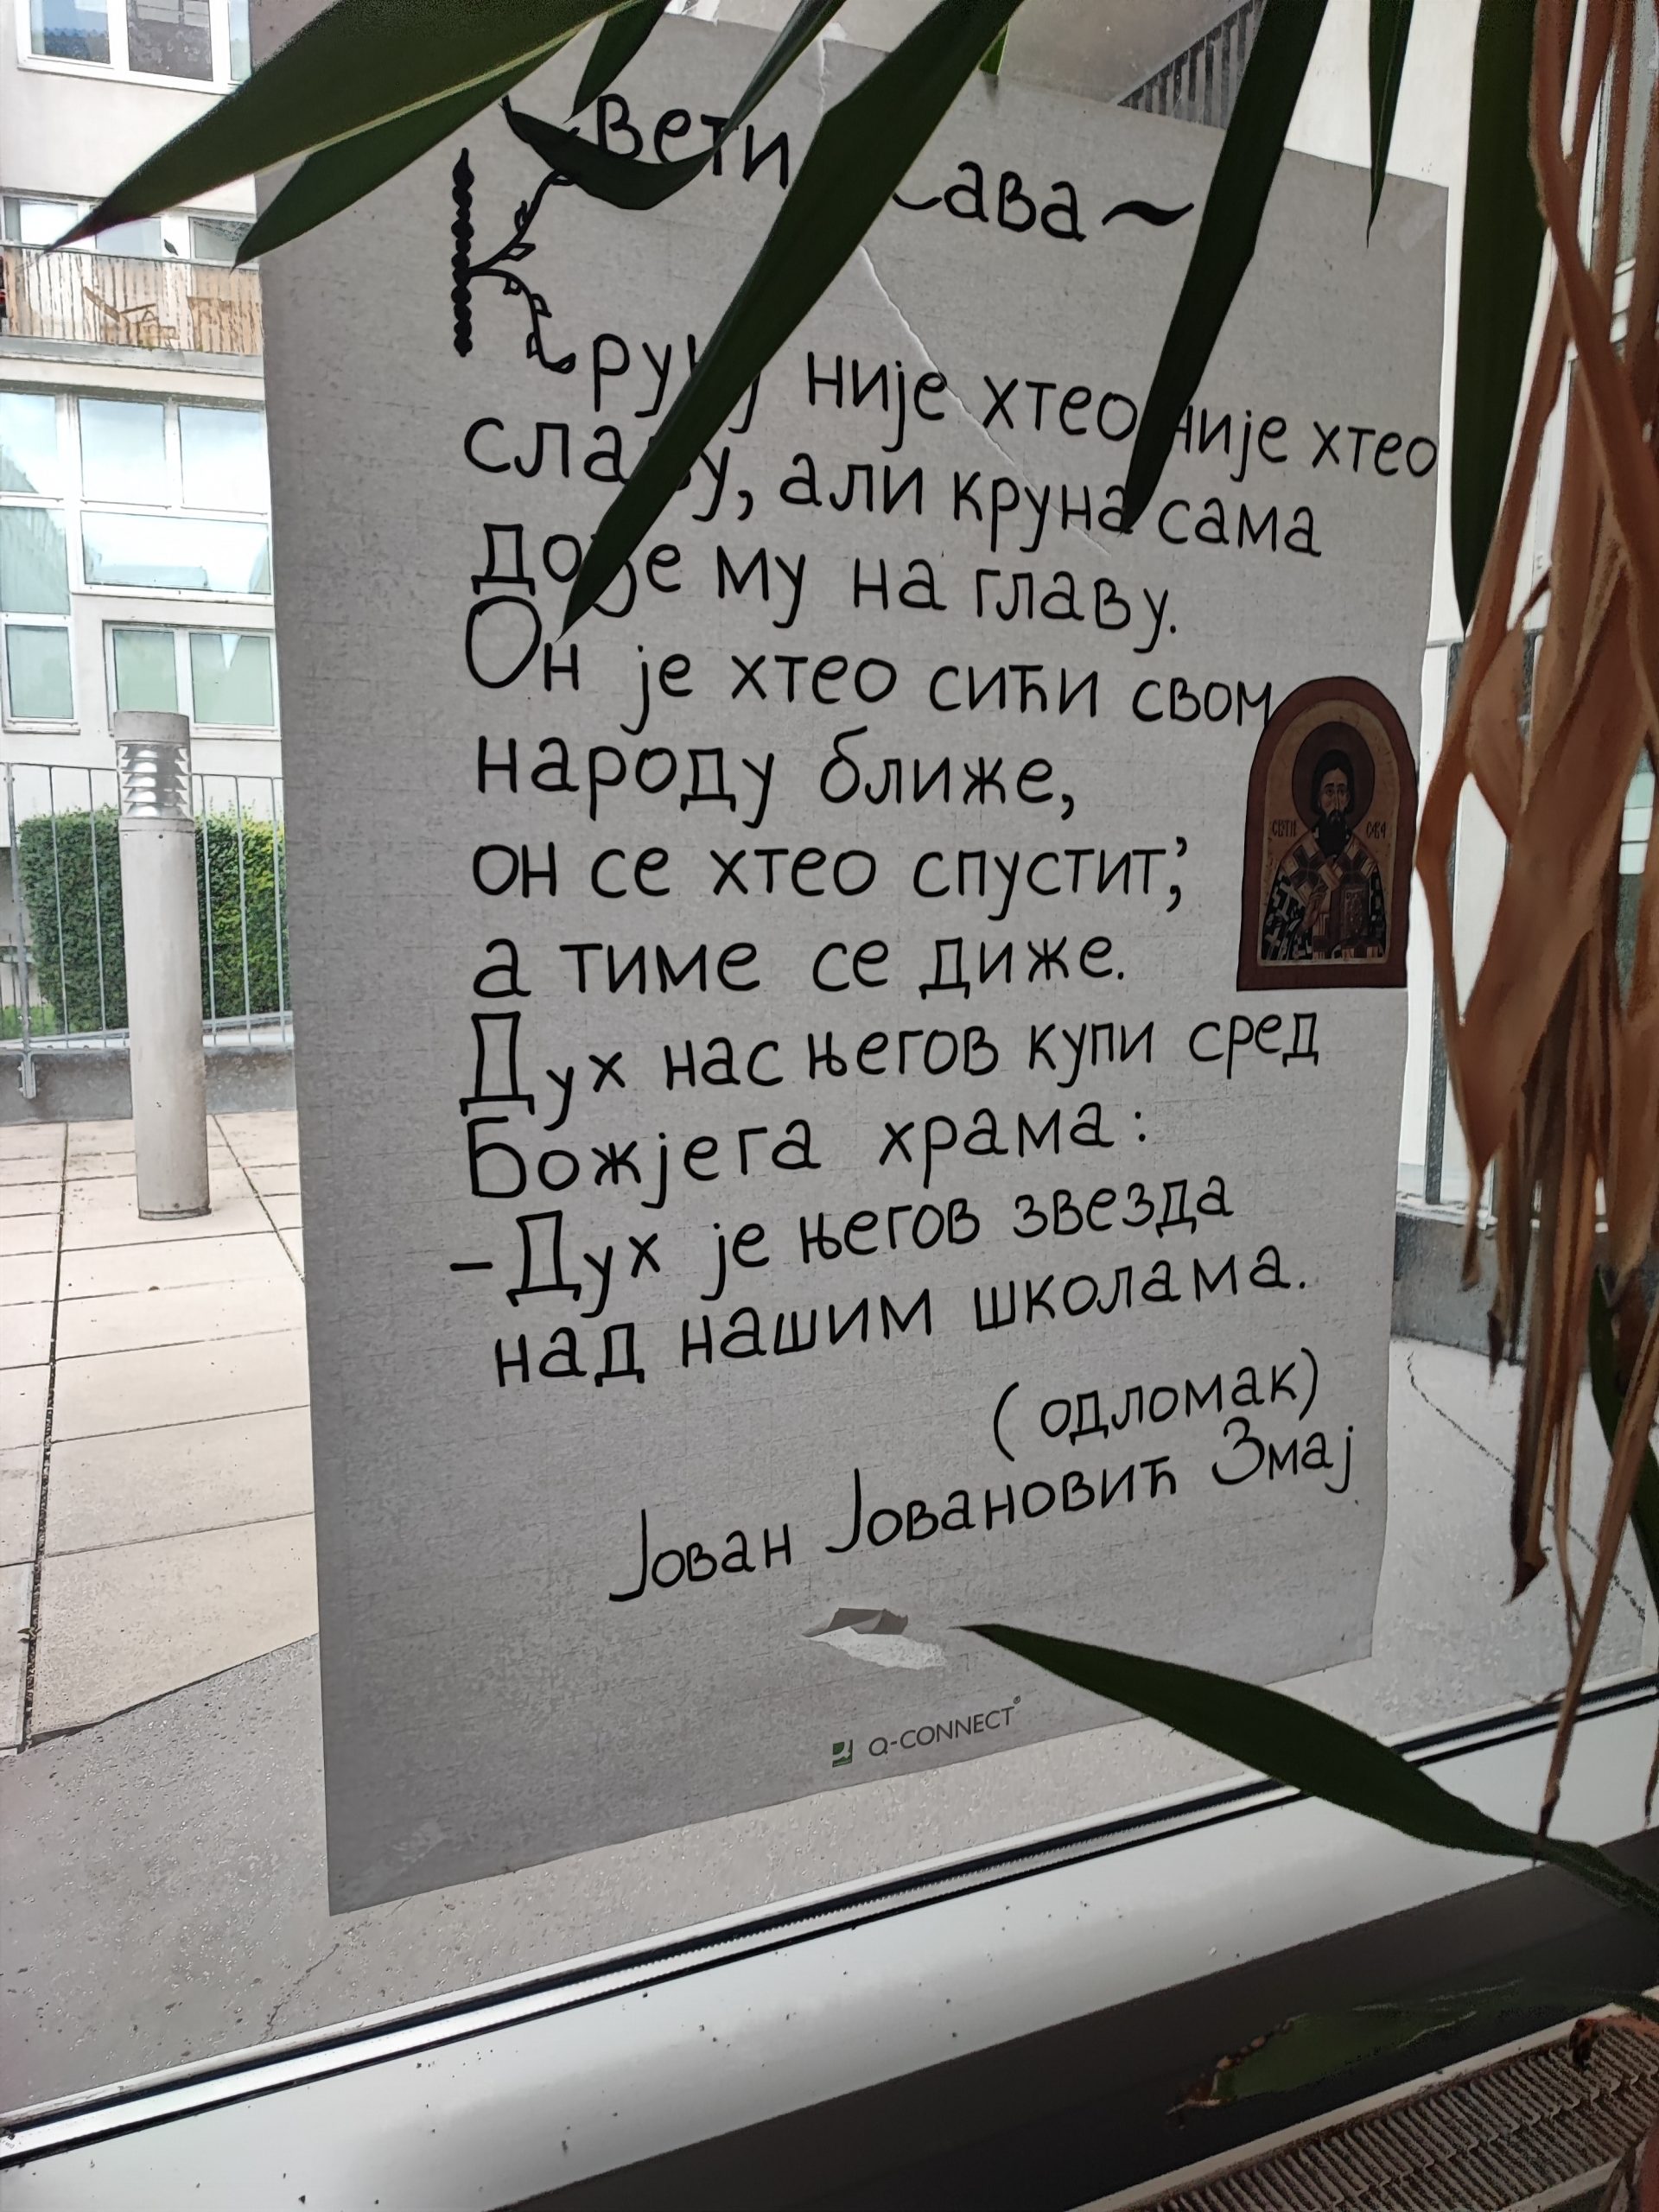 Свети Сава ~
Круну није хтео није хтео
славу, али круна сама
дође му на главу.
Он је хтео сићи свом
народу ближе,
он се хтео спустит',
а тиме се диже.
Дух нас његов купи сред
Божјега храма:
- Дух је његов звезда
над нашим школама.
(одломак)
Јован Јовановић Змај
СВТИ САВА
Q-CONNECT®